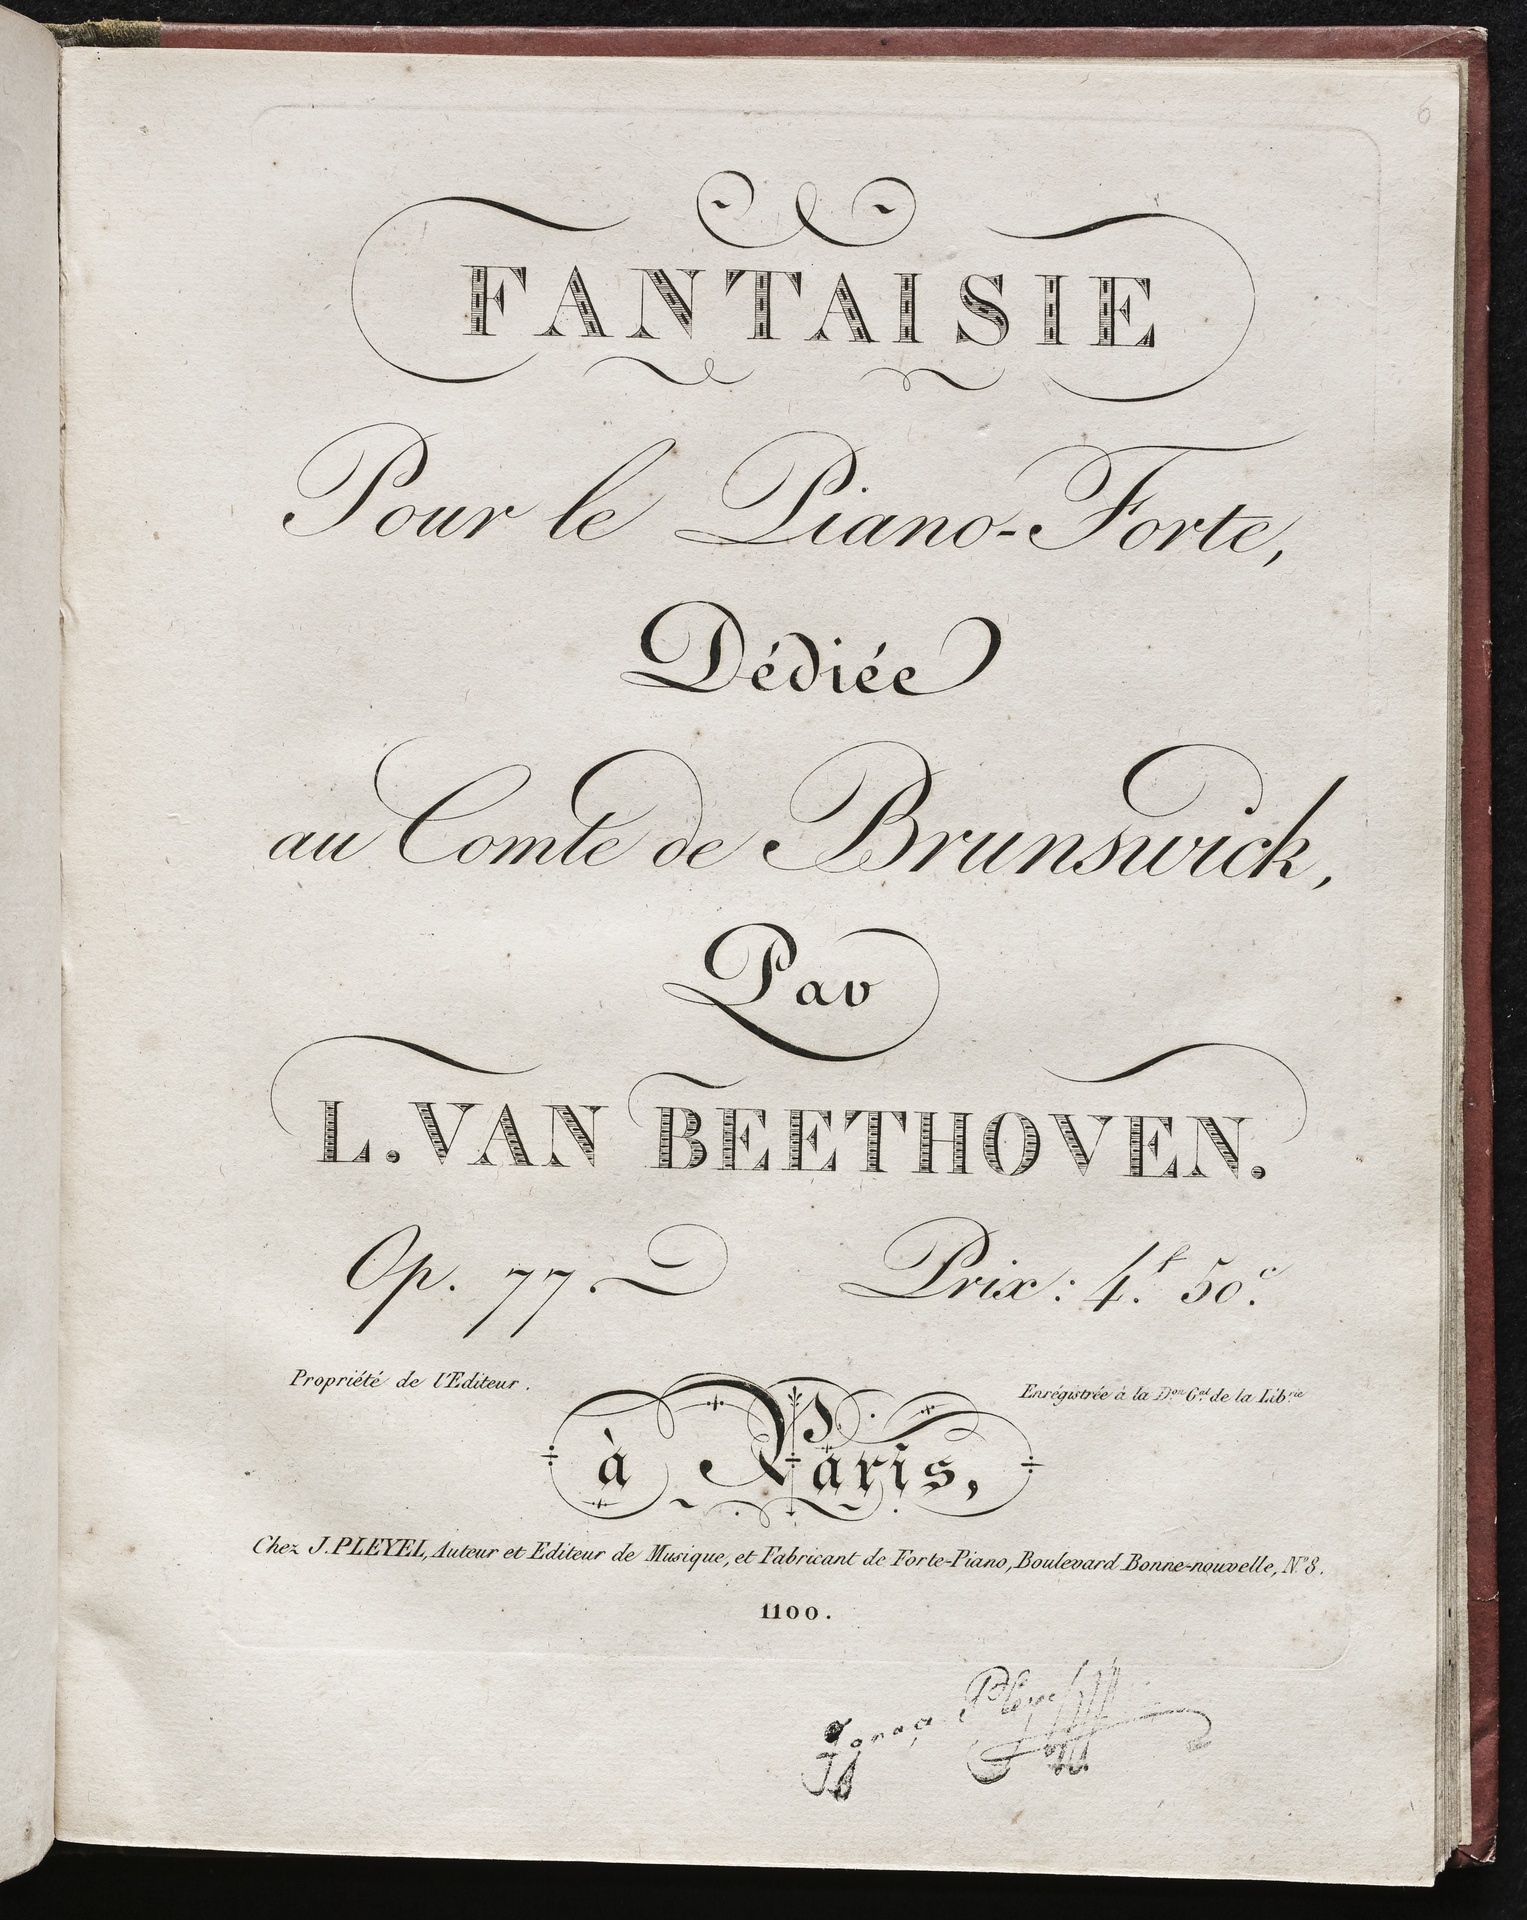 6
FANTAISIE
Pour le Piano-Forte,
Dédiée
au Comte de Brunswick,
Par
L. VAN BEETHOVEN.
Op. 77. Prix: 4.f 50.c
Propriété de l'Editeur. Enrégistrée à la D.on G.al de la Lib.rie
à Paris,
Chez J. PLEYEL, Auteur et Editeur de Musique, et Fabricant de Forte-Piano, Boulevard Bonne-nouvelle, N.o 8.
1100.
Ignace Pleyel